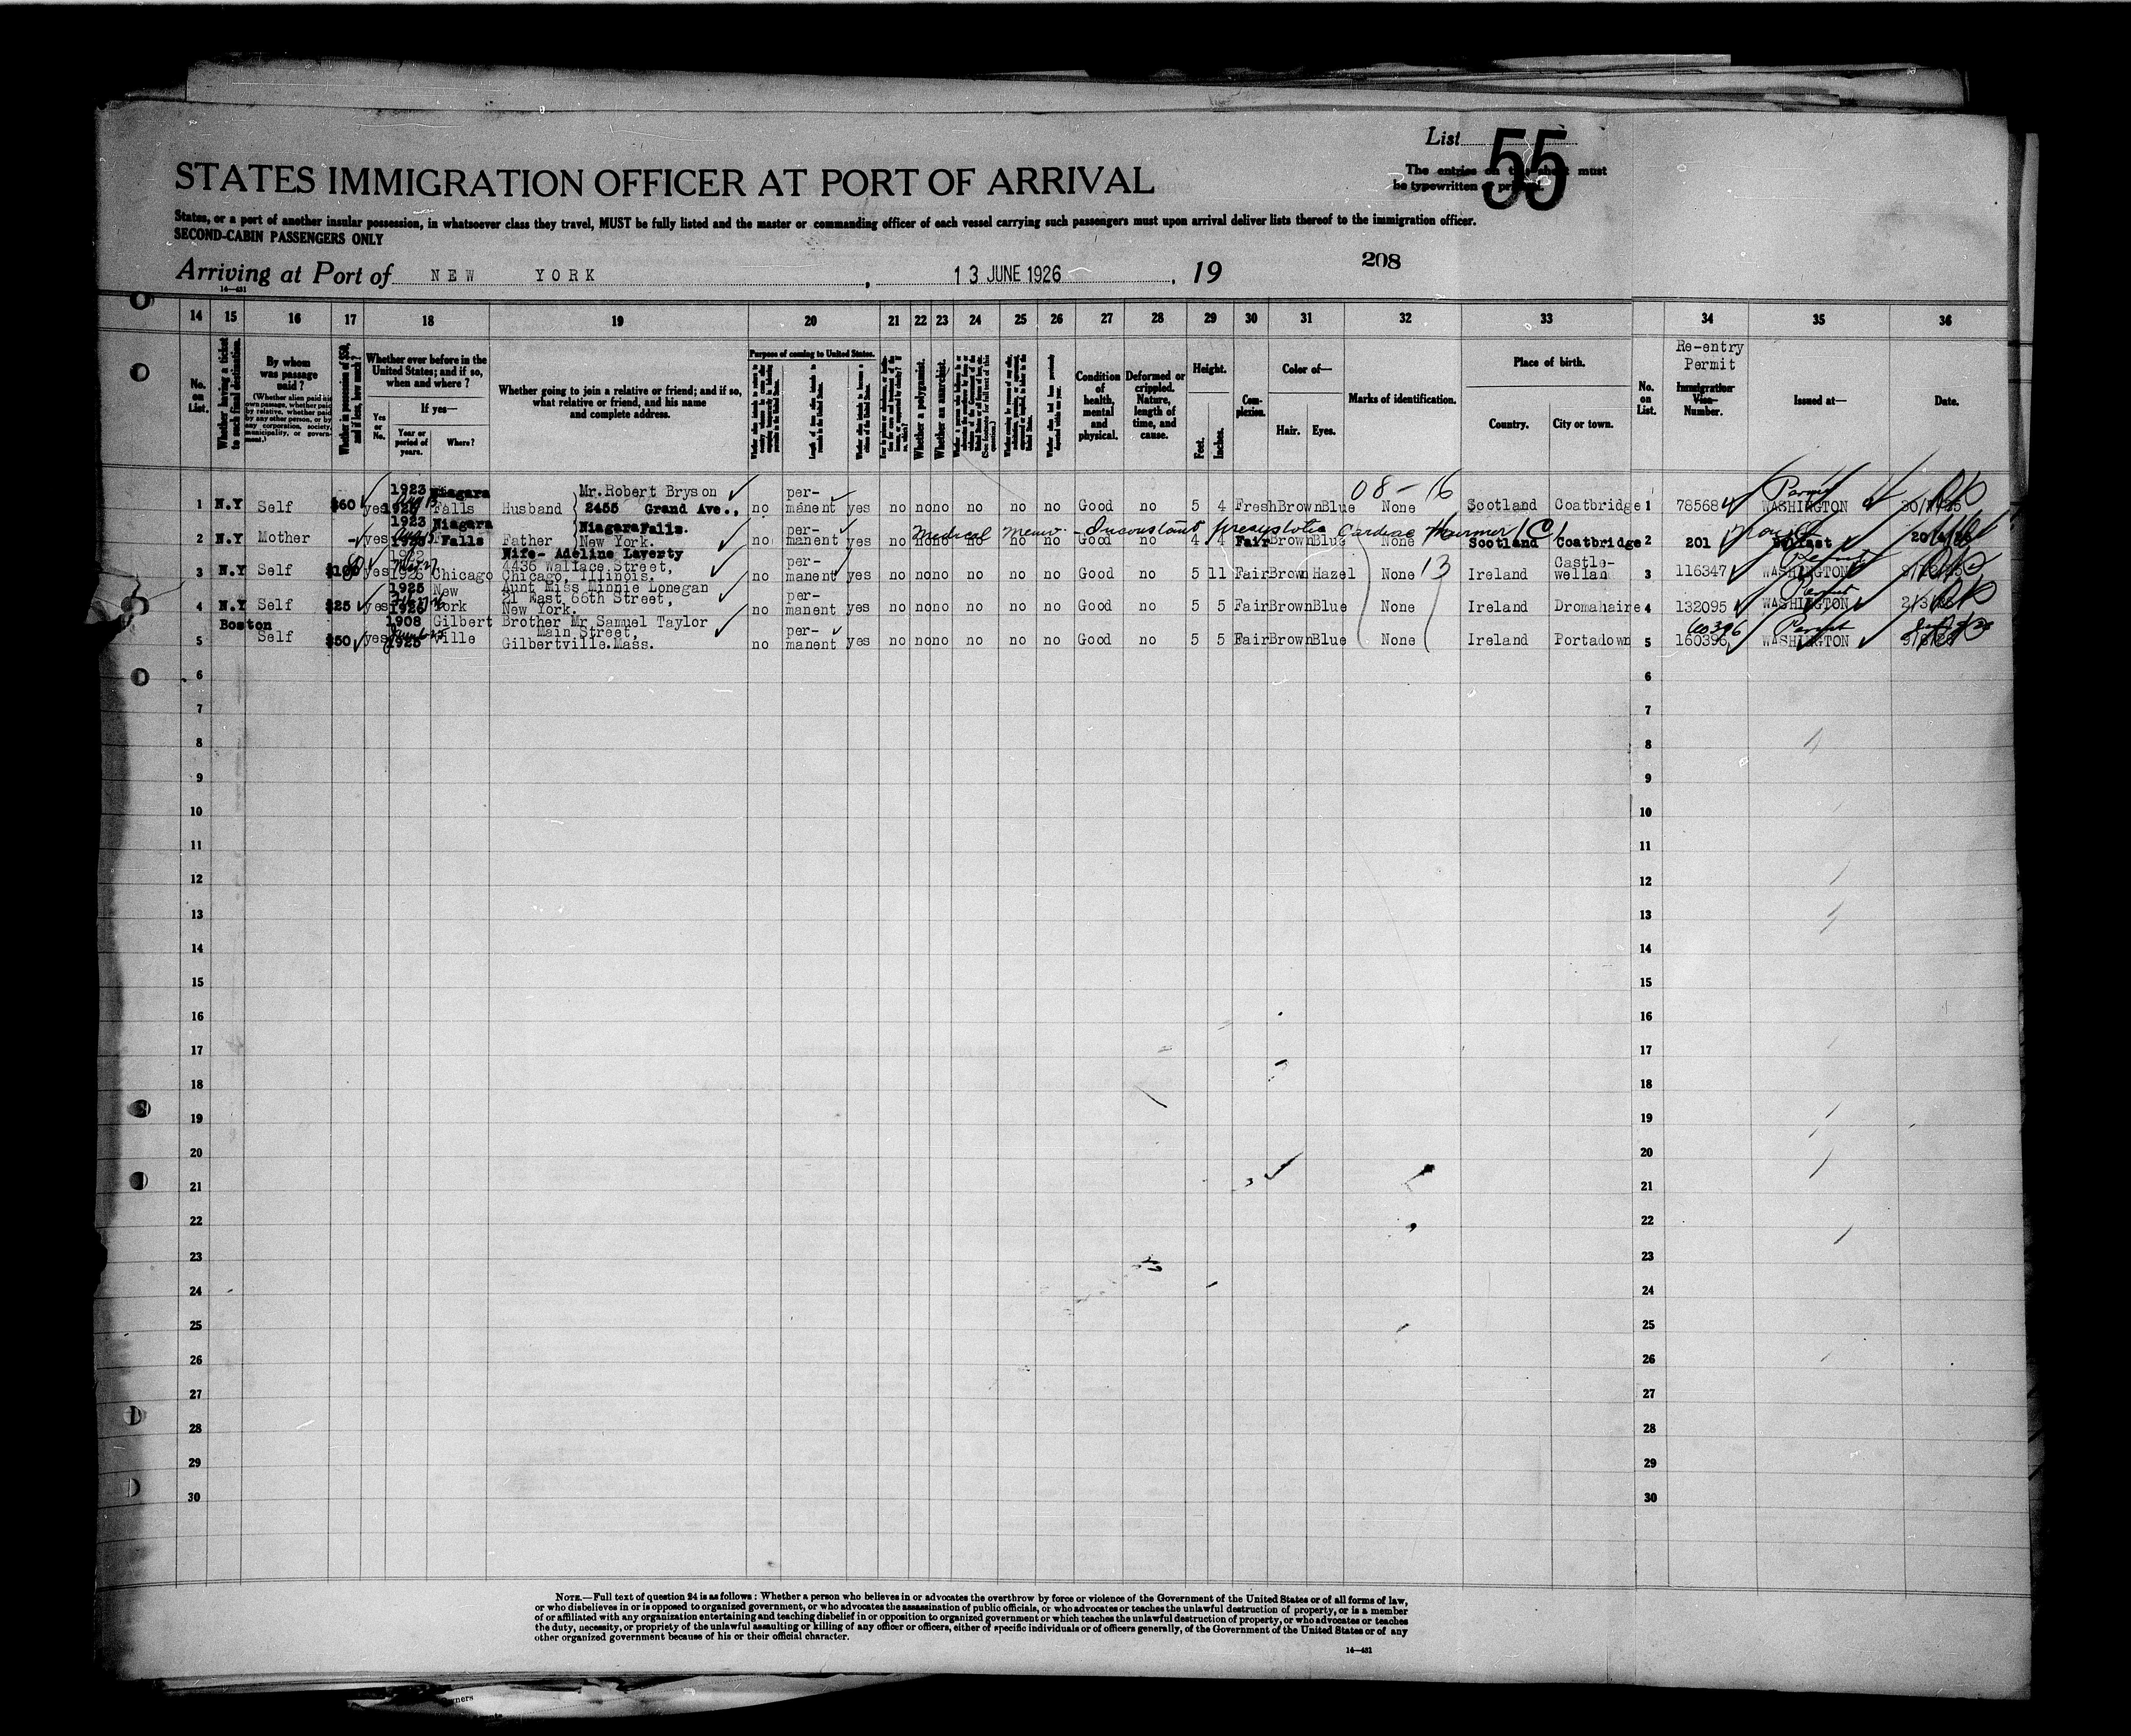 List 55
The entries on this sheet must
be typewritten or printed.
STATES IMMIGRATION OFFICER AT PORT OF ARRIVAL
States, or a port of another insular possession, in whatsoever class they travel, MUST be fully listed and the master or commanding officer of each vessel carrying such passengers must upon arrival deliver lists thereof to the immigration officer.
SECOND-CABIN PASSENGERS ONLY
Arriving at Port of NEW YORK, 13 JUNE 1926, 19
208
14—431
14 15 16 17 18 19 20 21 22 23 24 25 26 27 28 29 30 31 32 33 34 35 36
No. on List.
Whether having a ticket to such final destination.
By whom was passage paid?
(Whether alien paid his own passage, whether paid by relative, whether paid by any other person, or by any corporation, society, municipality, or government.)
Whether in possession of $50, and if less, how much?
Whether ever before in the United States; and if so, when and where?
Yes or No.
If yes—
Year or period of years.
Where?
Whether going to join a relative or friend; and if so, what relative or friend, and his name and complete address.
Purpose of coming to United States.
Whether a polygamist.
Whether an anarchist.
Condition of health, mental and physical.
Deformed or crippled. Nature, length of time, and cause.
Height.
Feet.
Inches.
Complexion.
Color of—
Hair.
Eyes.
Marks of identification.
Place of birth.
Country.
City or town.
No. on List.
Re-entry Permit
Immigration Visa Number.
Issued at—
Date.
08-16
1 N.Y Self $60 yes 1923 1925 Niagara Falls Husband Mr. Robert Bryson 2455 Grand Ave., no per-manent yes no no no no no no Good no 5 4 Fresh Brown Blue None Scotland Coatbridge 1 78568 Permit WASHINGTON
2 N.Y Mother - yes 1923 1925 Niagara Falls Father Niagara Falls. New York. no per-manent yes no no no no no no Good no 4 4 Fair Brown Blue None Scotland Coatbridge 2 201 Belfast
Medical Memo - Inconstant presystolic Cardiac Murmur (C)
3 N.Y Self $100 yes 1926 Chicago Wife- Adeline Laverty 4436 Wallace Street, Chicago, Illinois. no per-manent yes no no no no no no Good no 5 11 Fair Brown Hazel None 13 Ireland Castle-wellan 3 116347 Permit WASHINGTON
4 N.Y Self $25 yes 1925 1926 New York Aunt Miss Minnie Lonegan 21 East 66th Street, New York. no per-manent yes no no no no no no Good no 5 5 Fair Brown Blue None Ireland Dromahaire 4 132095 Permit WASHINGTON
5 Boston Self $50 yes 1908 1925 Gilbert ville Brother Mr Samuel Taylor Main Street, Gilbertville.Mass. no per-manent yes no no no no no no Good no 5 5 Fair Brown Blue None Ireland Portadown 5 160396 Permit WASHINGTON
6 6
7 7
8 8
9 9
10 10
11 11
12 12
13 13
14 14
15 15
16 16
17 17
18 18
19 19
20 20
21 21
22 22
23 23
24 24
25 25
26 26
27 27
28 28
29 29
30 30
NOTE.—Full text of question 24 is as follows: Whether a person who believes in or advocates the overthrow by force or violence of the Government of the United States or of all forms of law,
or who disbelieves in or is opposed to organized government, or who advocates the assassination of public officials, or who advocates or teaches the unlawful destruction of property, or is a member
of or affiliated with any organization entertaining and teaching disbelief in or opposition to organized government or which teaches the unlawful destruction of property, or who advocates or teaches
the duty, necessity, or propriety of the unlawful assaulting or killing of any officer or officers, either of specific individuals or of officers generally, of the Government of the United States or of any
other organized government because of his or their official character.
14—431